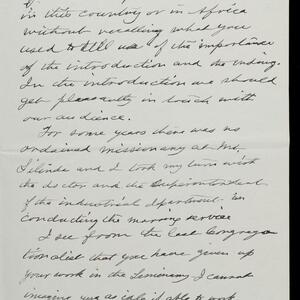 in this country or in Africa
without recalling what you
used to tell us of the importance
of the introduction and the ending.
In the introduction we should
get pleasantly in touch with
our audience.
For some years there was no
ordained missionary at Mt.
Silinda and I took my turn with
the doctor and the Superintendent
of the industrial department in
conducting the morning service
I see from the last Congrega
tionalist that you have given up
your work in the Seminary. I cannot
imagine you as able to work